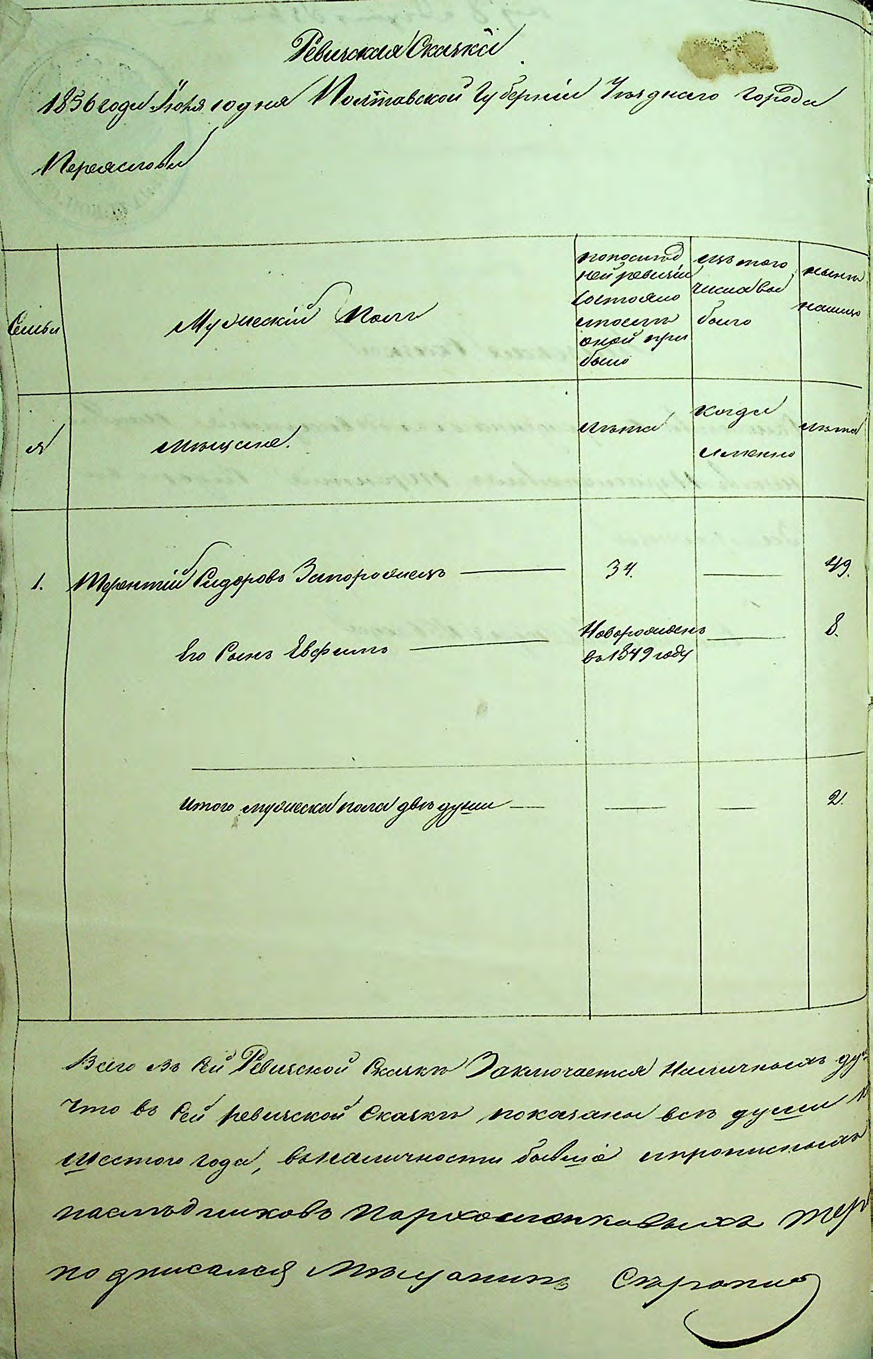 Ревизская Сказка
1856 года Іюня 10 дня Полтавской Губерніи Уѣзднаго города
Переяслова
Семьи
Мужескій Полъ
по послѣд
ней ревизіи
состояло
и послѣ
оной при
было
изъ того
числа вы
было
нынѣ
на лицо
№
Мѣщане.
лѣта
когда
именно
лѣта
1. Терентій Сидоровъ Запорожецъ 34. 49.
Его Сынъ Евфимъ
Новорожденъ
въ 1849 году
8.
Итого мужеска пола двѣ души 2.
Всего въ Сей Ревизской Сказкѣ Заключается Наличныхъ ду
Что въ Сей ревизской Сказкѣ показаны всѣ души
шестого года, въ наличности бывшіе и прописныхъ
наслѣдниковъ Пархоменковыхъ Тер
подписался Мѣщанинъ